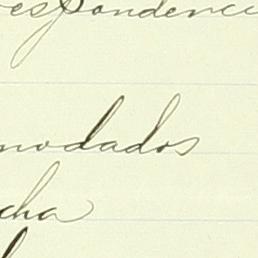 respondencia
modados
cha